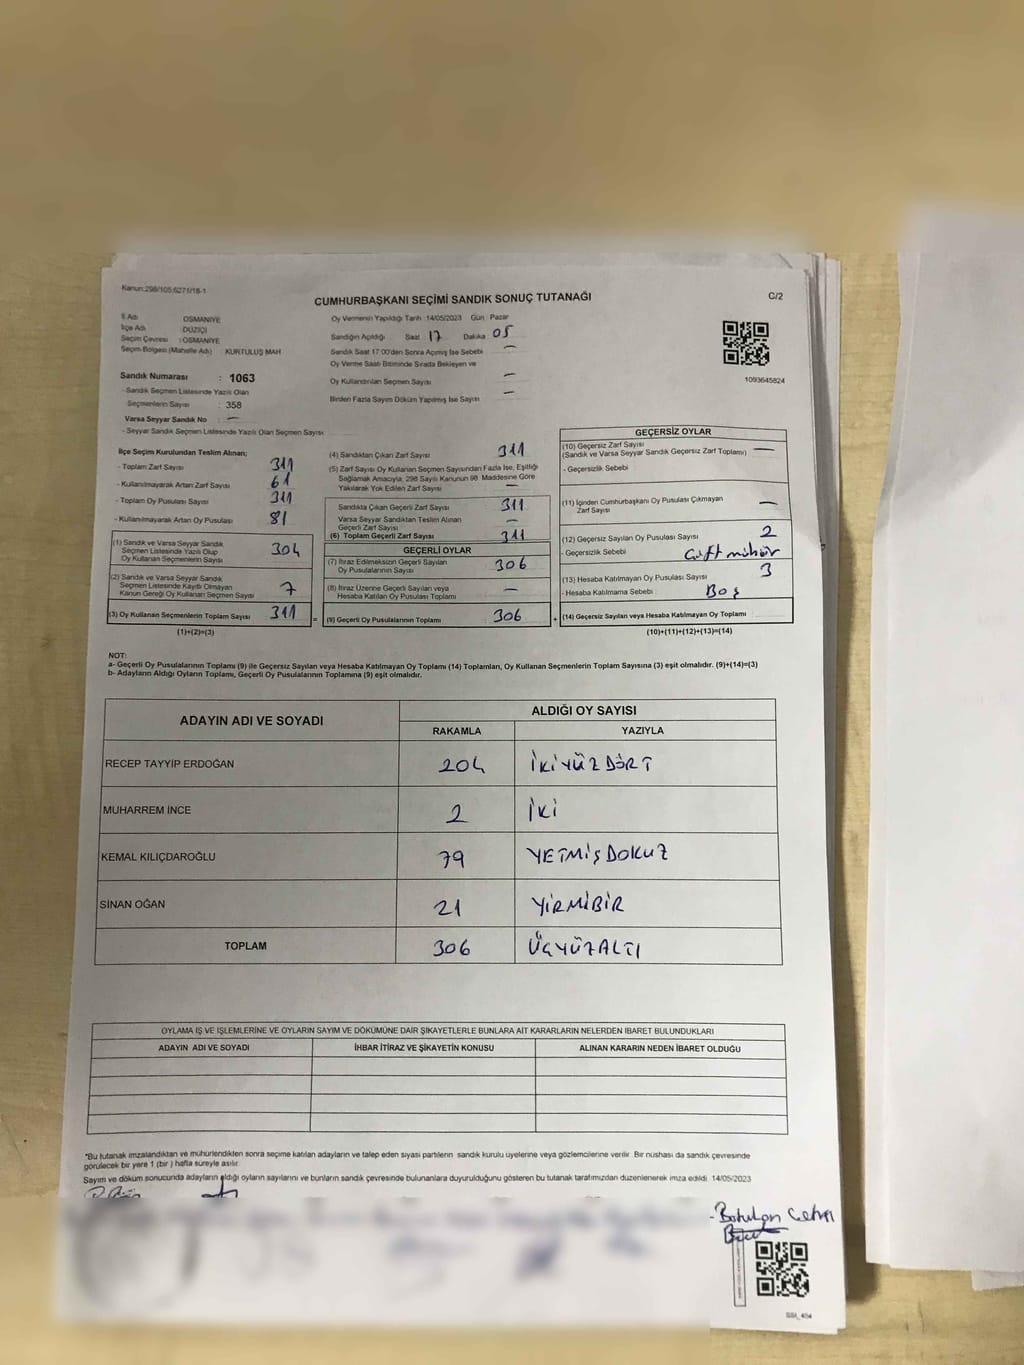 Kanun:298/105,6271/18-1
CUMHURBAŞKANI SEÇİMİ SANDIK SONUÇ TUTANAĞI
C/2
İl Adı OSMANİYE
İlçe Adı DÜZİÇİ
Seçim Çevresi : OSMANİYE
Seçim Bölgesi (Mahalle Adı) KURTULUŞ MAH
Sandık Numarası : 1063
- Sandık Seçmen Listesinde Yazılı Olan
Seçmenlerin Sayısı : 358
Varsa Seyyar Sandık No : —
- Seyyar Sandık Seçmen Listesinde Yazılı Olan Seçmen Sayısı
Oy Vermenin Yapıldığı Tarih :14/05/2023 Gün : Pazar
Sandığın Açıldığı Saat 17 Dakika 05
Sandık Saat 17:00'den Sonra Açılmış İse Sebebi —
Oy Verme Saati Bitiminde Sırada Bekleyen ve
Oy Kullandırılan Seçmen Sayısı —
Birden Fazla Sayım Döküm Yapılmış İse Sayısı —
1093645824
İlçe Seçim Kurulundan Teslim Alınan;
- Toplam Zarf Sayısı 311
- Kullanılmayarak Artan Zarf Sayısı 61
- Toplam Oy Pusulası Sayısı 311
- Kullanılmayarak Artan Oy Pusulası 81
(1) Sandık ve Varsa Seyyar Sandık
Seçmen Listesinde Yazılı Olup
Oy Kullanan Seçmenlerin Sayısı 304
(2) Sandık ve Varsa Seyyar Sandık
Seçmen Listesinde Kayıtlı Olmayan
Kanun Gereği Oy Kullanan Seçmen Sayısı 7
(3) Oy Kullanan Seçmenlerin Toplam Sayısı 311 =
(1)+(2)=(3)
(4) Sandıktan Çıkan Zarf Sayısı 311
(5) Zarf Sayısı Oy Kullanan Seçmen Sayısından Fazla İse, Eşitliği
Sağlamak Amacıyla, 298 Sayılı Kanunun 98. Maddesine Göre
Yakılarak Yok Edilen Zarf Sayısı —
Sandıkta Çıkan Geçerli Zarf Sayısı 311
Varsa Seyyar Sandıktan Teslim Alınan
Geçerli Zarf Sayısı —
(6) Toplam Geçerli Zarf Sayısı 311
GEÇERLİ OYLAR
(7) İtiraz Edilmeksizin Geçerli Sayılan
Oy Pusulalarının Sayısı 306
(8) İtiraz Üzerine Geçerli Sayılan veya
Hesaba Katılan Oy Pusulası Toplamı —
(9) Geçerli Oy Pusulalarının Toplamı 306 +
GEÇERSİZ OYLAR
(10) Geçersiz Zarf Sayısı
(Sandık ve Varsa Seyyar Sandık Geçersiz Zarf Toplamı) —
- Geçersizlik Sebebi
(11) İçinden Cumhurbaşkanı Oy Pusulası Çıkmayan
Zarf Sayısı —
(12) Geçersiz Sayılan Oy Pusulası Sayısı 2
- Geçersizlik Sebebi Çift mühür
(13) Hesaba Katılmayan Oy Pusulası Sayısı 3
- Hesaba Katılmama Sebebi Boş
(14) Geçersiz Sayılan veya Hesaba Katılmayan Oy Toplamı
(10)+(11)+(12)+(13)=(14)
NOT:
a- Geçerli Oy Pusulalarının Toplamı (9) ile Geçersiz Sayılan veya Hesaba Katılmayan Oy Toplamı (14) Toplamları, Oy Kullanan Seçmenlerin Toplam Sayısına (3) eşit olmalıdır. (9)+(14)=(3)
b- Adayların Aldığı Oyların Toplamı, Geçerli Oy Pusulalarının Toplamına (9) eşit olmalıdır.
ADAYIN ADI VE SOYADI ALDIĞI OY SAYISI
RAKAMLA YAZIYLA
RECEP TAYYİP ERDOĞAN 204 İKİYÜZDÖRT
MUHARREM İNCE 2 İKİ
KEMAL KILIÇDAROĞLU 79 YETMİŞDOKUZ
SİNAN OĞAN 21 YİRMİBİR
TOPLAM 306 ÜÇYÜZALTI
OYLAMA İŞ VE İŞLEMLERİNE VE OYLARIN SAYIM VE DÖKÜMÜNE DAİR ŞİKAYETLERLE BUNLARA AİT KARARLARIN NELERDEN İBARET BULUNDUKLARI
ADAYIN ADI VE SOYADI İHBAR İTİRAZ VE ŞİKAYETİN KONUSU ALINAN KARARIN NEDEN İBARET OLDUĞU
*Bu tutanak imzalandıktan ve mühürlendikten sonra seçime katılan adayların ve talep eden siyasi partilerin sandık kurulu üyelerine veya gözlemcilerine verilir. Bir nüshası da sandık çevresinde
görülecek bir yere 1 (bir ) hafta süreyle asılır.
Sayım ve döküm sonucunda adayların aldığı oyların sayılarını ve bunların sandık çevresinde bulunanlara duyurulduğunu gösteren bu tutanak tarafımızdan düzenlenerek imza edildi. 14/05/2023